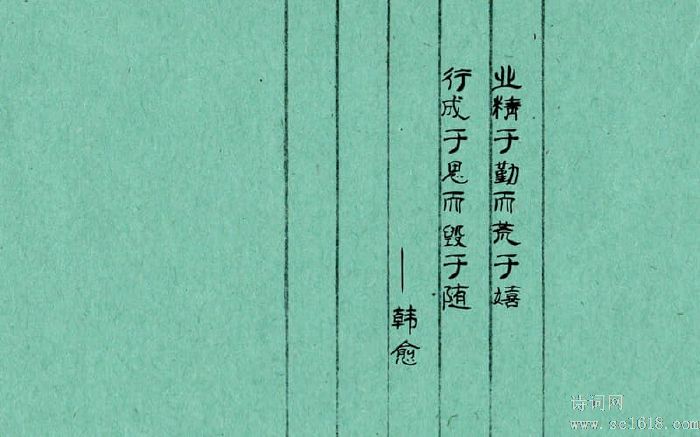 业精于勤而荒于嬉
行成于思而毁于随
—韩愈
诗词网
www.sc1618.com